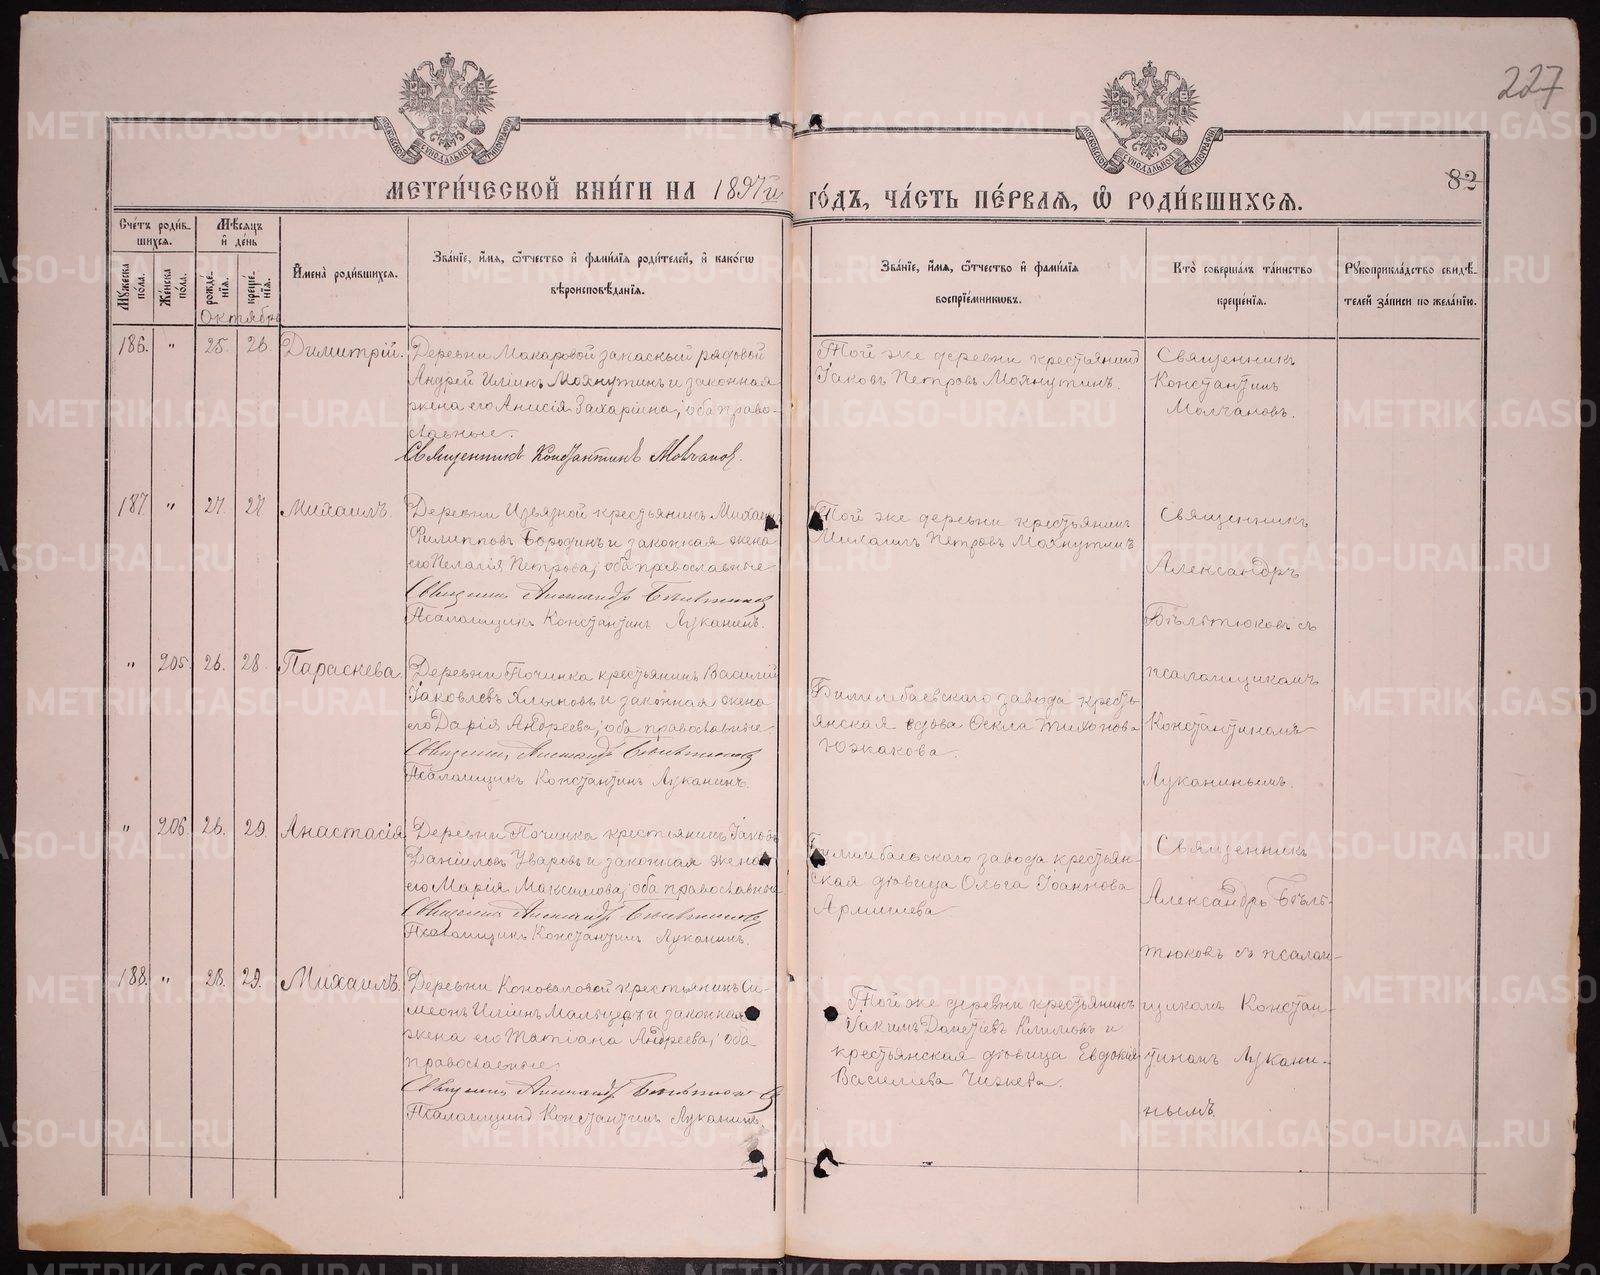 227
82
МОСКОВСКОЙ СѴНОДАЛЬНОЙ ТИПОГРАФІИ
МОСКОВСКОЙ СѴНОДАЛЬНОЙ ТИПОГРАФІИ
МЕТРИ́ЧЕСКОЙ КНИ́ГИ НА 1897й
ГО́ДЪ, ЧА́СТЬ ПЕ́РВАЯ, Ѡ РОДИ́ВШИХСѦ.
Сче́тъ роди́в-
шихся.
Мꙋжеска по́ла.
Же́нска по́ла.
Мѣ́сѧцъ
и де́нь
рожде́-
нїѧ.
креще́-
нїѧ.
Имена̀ роди́вшихсѧ.
Зва́нїе, и́мѧ, ѻ́тчество и фами́лїѧ роди́телей, и како́гѡ
вѣроисповѣ́данїѧ.
Зва́нїе, и́мѧ, ѻ́тчество и фами́лїѧ
воспрїе́мникѡвъ.
Кто̀ соверша́лъ та́инство
креще́нїѧ.
Рꙋкоприкла́дство свидѣ́-
телей за́писи по жела́нїю.
Октябрь
186. " 25. 26. Димитрій.
Деревни Макаровой запасный рядовой
Андрей Иліинъ Мохнутинъ и законная
жена его Анисія Захаріина; оба право-
славные.
Священникъ Константинъ Молчанов.
Той же деревни крестьянинъ
Іаковъ Петровъ Мохнутинъ.
Священникъ
Константинъ
Молчановъ.
187. " 27. 27 Михаилъ.
Деревни Извязной крестьянинъ Михаилъ
Филипповъ Бородинъ и законная жена
его Пелагія Петрова; оба православные
Священникъ Александръ Бѣльтюковъ
Псаломщикъ Константинъ Луканинъ.
Той же деревни крестьянинъ
Михаилъ Петровъ Мохнутинъ
Священникъ
Александръ
Бѣльтюковъ съ
псаломщикомъ
Константиномъ
Луканинымъ.
" 205. 26. 28. Параскева.
Деревни Починка крестьянинъ Василій
Іаковлевъ Ялуновъ и законная жена
его Дарія Андреева; оба православные.
Священникъ Александръ Бѣльтюковъ
Псаломщикъ Константинъ Луканинъ.
Билимбаевскаго завода кресть-
янская вдова Ѳекла Тихонова
Южакова.
" 206. 26. 29. Анастасія
Деревни Починка крестьянинъ Іаковъ
Даніиловъ Уваровъ и законная жена
его Марія Максимова; оба православные
Священникъ Александръ Бѣльтюковъ
Псаломщикъ Константинъ Луканинъ.
Билимбаевскаго завода крестьян-
ская дѣвица Ольга Іоаннова
Армишева
Священникъ
Александръ Бѣль-
тюковъ съ псалом-
щикомъ Констан-
тиномъ Лукани-
нымъ.
188. " 28. 29. Михаилъ.
Деревни Коноваловой крестьянинъ Си-
меонъ Иліинъ Мальцевъ и законная
жена его Татіана Андреева; оба
православные.
Священникъ Александръ Бѣльтюковъ
Псаломщикъ Константинъ Луканинъ.
Той же деревни крестьянинъ
Іакимъ Дометіевъ Климовъ и
крестьянская дѣвица Евдокія
Василіева Чижева.